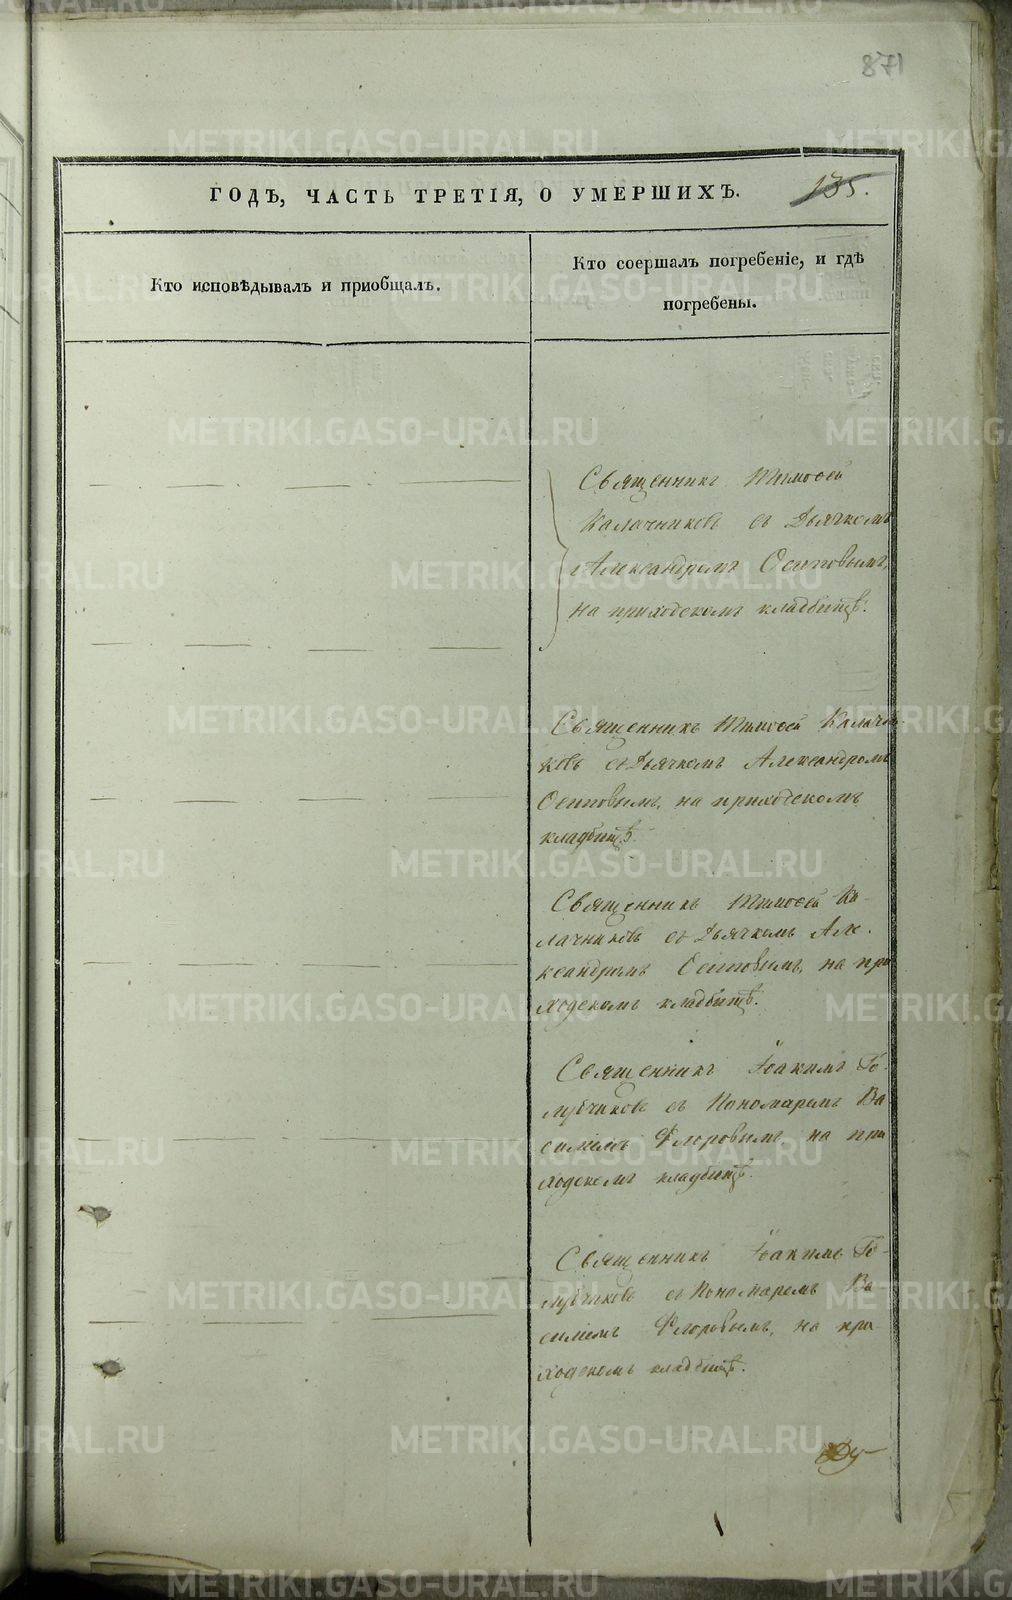 871
ГОДЪ, ЧАСТЬ ТРЕТІЯ, О УМЕРШИХЪ.
135.
Кто исповѣдывалъ и приобщалъ.
Кто соершалъ погребеніе, и гдѣ
погребены.
Священникъ Тимоѳей
Калачниковъ съ Дьячкомъ
Александромъ Осиповымъ,
на приходскомъ кладбищѣ.
Священникъ Тимоѳей Калачни-
ковъ съ Дьячкомъ Александромъ
Осиповымъ, на приходскомъ
кладбищѣ.
Священникъ Тимоѳей Ка-
лачниковъ съ Дьячкомъ Але-
ксандромъ Осиповымъ, на при
ходскомъ кладбищѣ.
Священникъ Іоакимъ Го-
лубчиковъ съ Пономаремъ Ва
силіемъ Флоровымъ на при
ходскомъ кладбищѣ.
Священникъ Іоакимъ Го-
лубчиковъ съ Пономаремъ Ва
силіемъ Флоровымъ, на при-
ходскомъ кладбищѣ.
METRIKI.GASO-URAL.RU